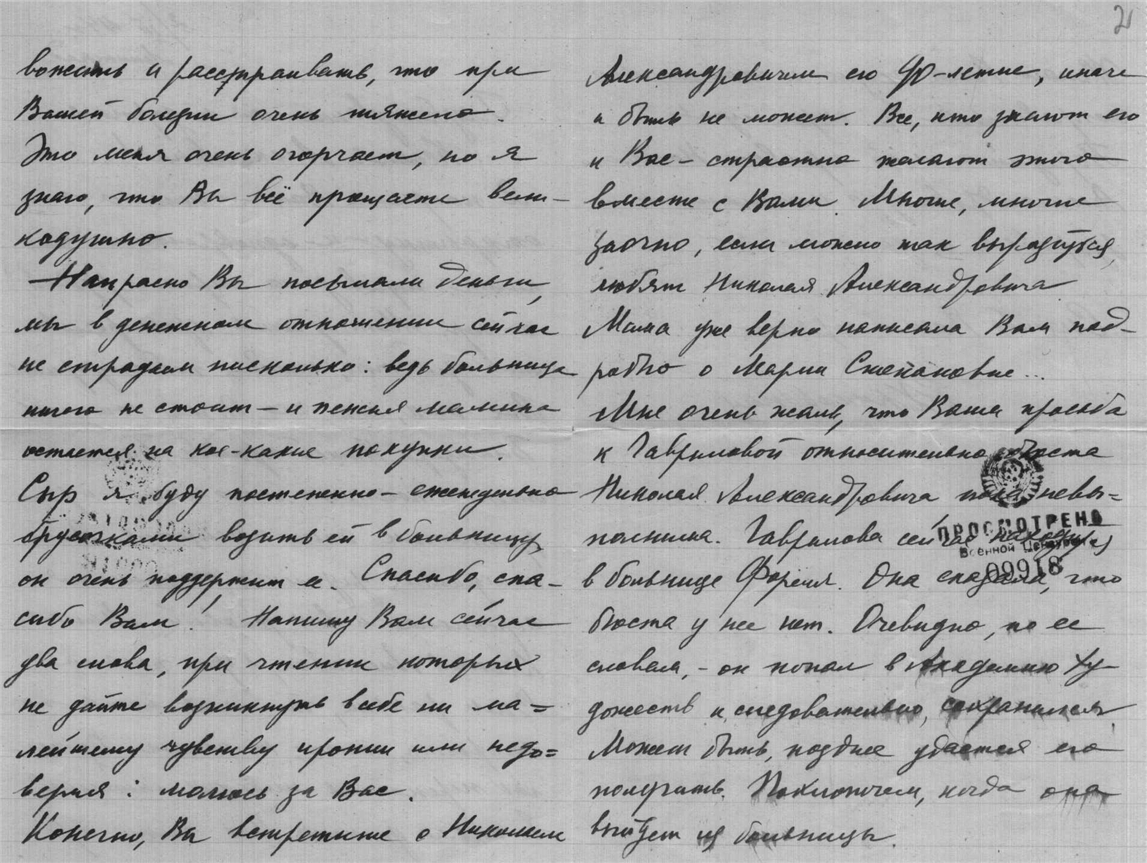 2
вожить и расстраивать, что при
Вашей болезни очень тяжело.
Это меня очень огорчает, но я
знаю, что Вы всё прощаете вели-
кодушно.
Напрасно Вы посылали деньги,
мы в денежном отношении сейчас
не страдаем нисколько: ведь больница
ничего не стоит – и пенсия мамина
остается на кое-какие покупки.
Сыр я буду постепенно – еженедельно
брусочками возить ей в больницу,
он очень поддержит ее. Спасибо, спа-
сибо Вам! Напишу Вам сейчас
два слова, при чтении которых
не дайте возникнуть в себе ни ма=
лейшему чувству иронии или недо=
верия: молюсь за Вас.
Конечно, Вы встретите с Николаем
Александровичем его 90-летие, иначе
и быть не может. Все, кто знают его
и Вас – страстно желают этого
вместе с Вами. Многие, многие
заочно, если можно так выразиться,
любят Николая Александровича
Мама уже верно написала Вам под-
робно о Марии Степановне...
Мне очень жаль, что Ваша просьба
к Гавриловой относительно бюста
Николая Александровича пока невы-
полнима. Гаврилова сейчас находится
в больнице Фореля. Она сказала, что
бюста у нее нет. Очевидно, по ее
словам, – он попал в Академию Ху-
дожеств и, следовательно, сохранился.
Может быть, позднее удастся его
получить. Похлопочем, когда она
выйдет из больницы.
ПРОСМОТРЕНО
Военной Цензурой
09918